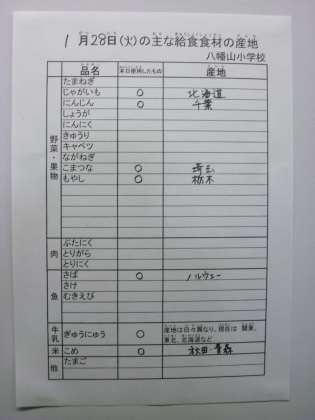 1月28日(火)の主な給食食材の産地
八幡山小学校
品名 本日使用したもの 産地
野菜・果物
たまねぎ
じゃがいも ○ 北海道
にんじん ○ 千葉
しょうが
にんにく
きゅうり
キャベツ
ながねぎ
こまつな ○ 埼玉
もやし ○ 栃木
肉
ぶたにく
とりがら
とりにく
魚
さば ○ ノルウェー
さけ
むきえび
牛乳 ぎゅうにゅう ○ 産地は日々異なり、現在は 関東、
東北、北海道など
米 こめ ○ 秋田・青森
他 たまご